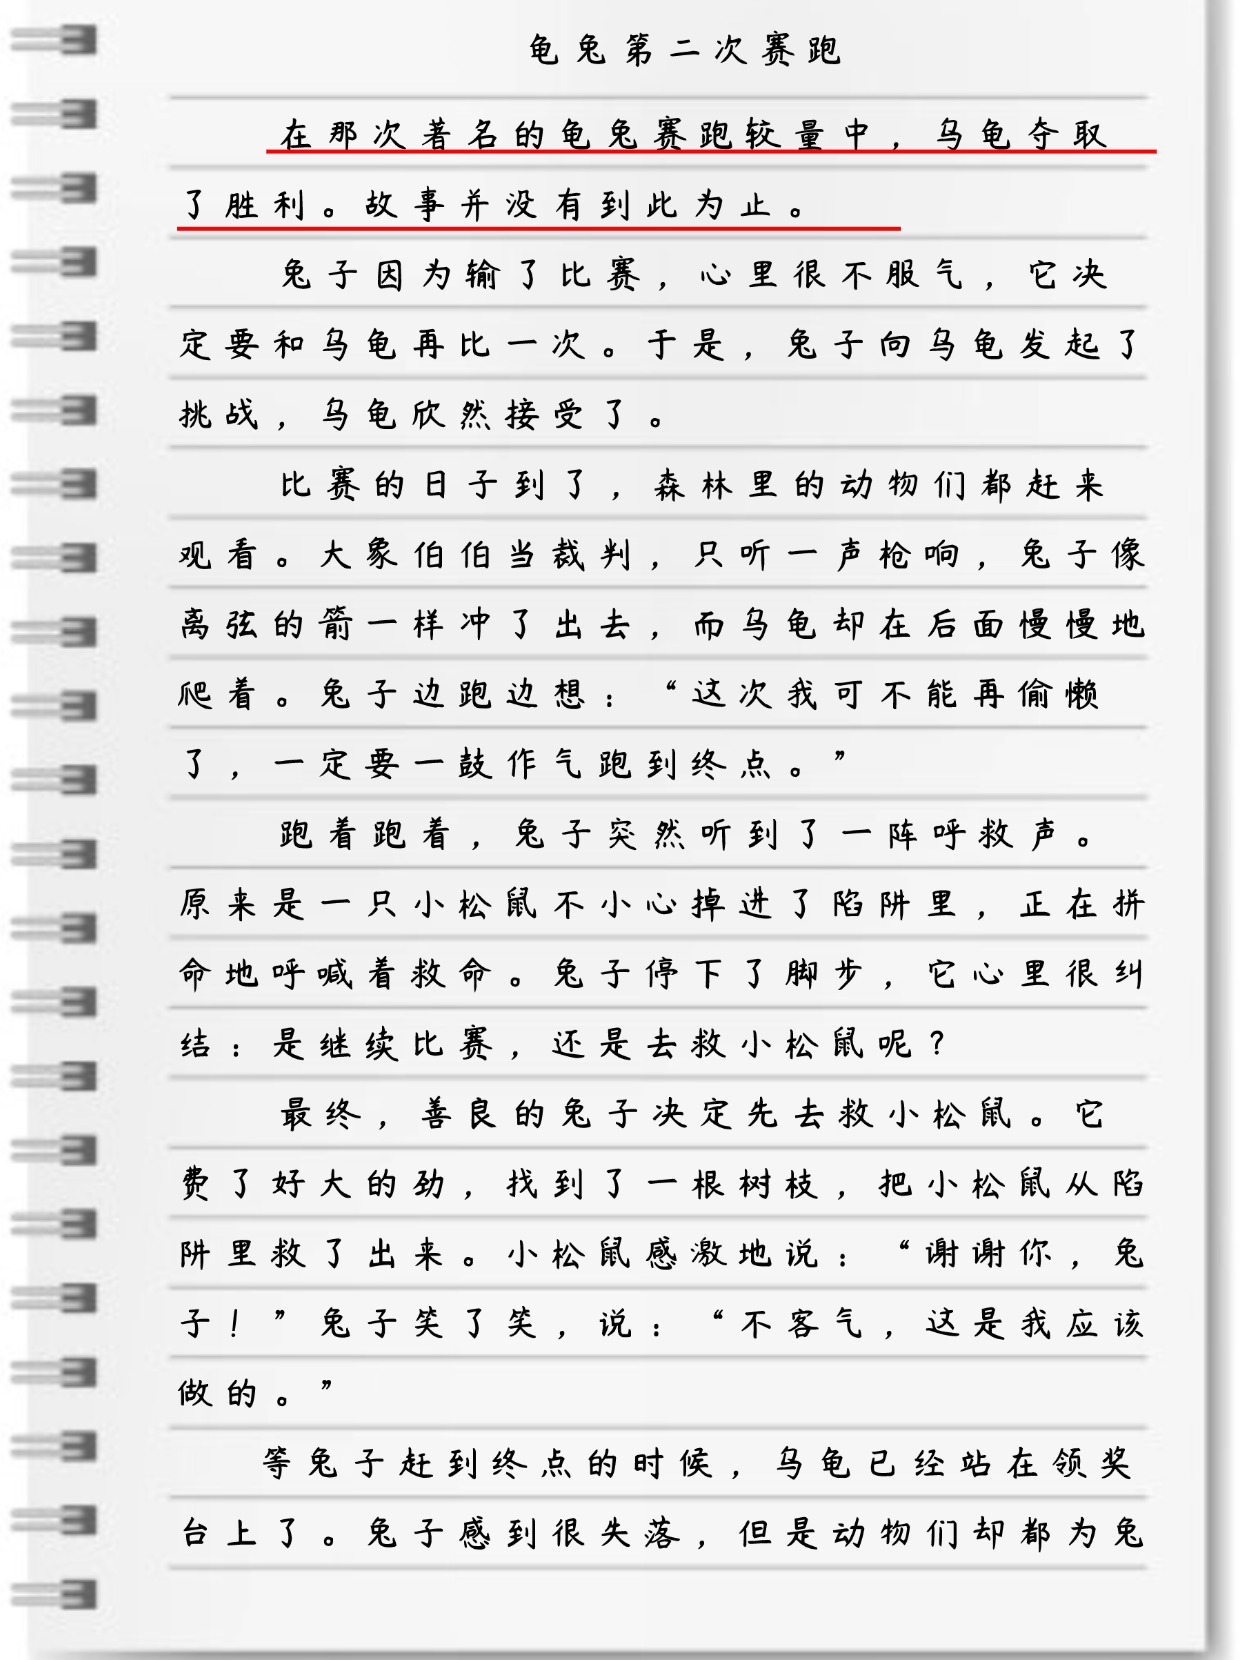 龟兔第二次赛跑
在那次著名的龟兔赛跑较量中，乌龟夺取
了胜利。故事并没有到此为止。
兔子因为输了比赛，心里很不服气，它决
定要和乌龟再比一次。于是，兔子向乌龟发起了
挑战，乌龟欣然接受了。
比赛的日子到了，森林里的动物们都赶来
观看。大象伯伯当裁判，只听一声枪响，兔子像
离弦的箭一样冲了出去，而乌龟却在后面慢慢地
爬着。兔子边跑边想：“这次我可不能再偷懒
了，一定要一鼓作气跑到终点。”
跑着跑着，兔子突然听到了一阵呼救声。
原来是一只小松鼠不小心掉进了陷阱里，正在拼
命地呼喊着救命。兔子停下了脚步，它心里很纠
结：是继续比赛，还是去救小松鼠呢？
最终，善良的兔子决定先去救小松鼠。它
费了好大的劲，找到了一根树枝，把小松鼠从陷
阱里救了出来。小松鼠感激地说：“谢谢你，兔
子！”兔子笑了笑，说：“不客气，这是我应该
做的。”
等兔子赶到终点的时候，乌龟已经站在领奖
台上了。兔子感到很失落，但是动物们却都为兔